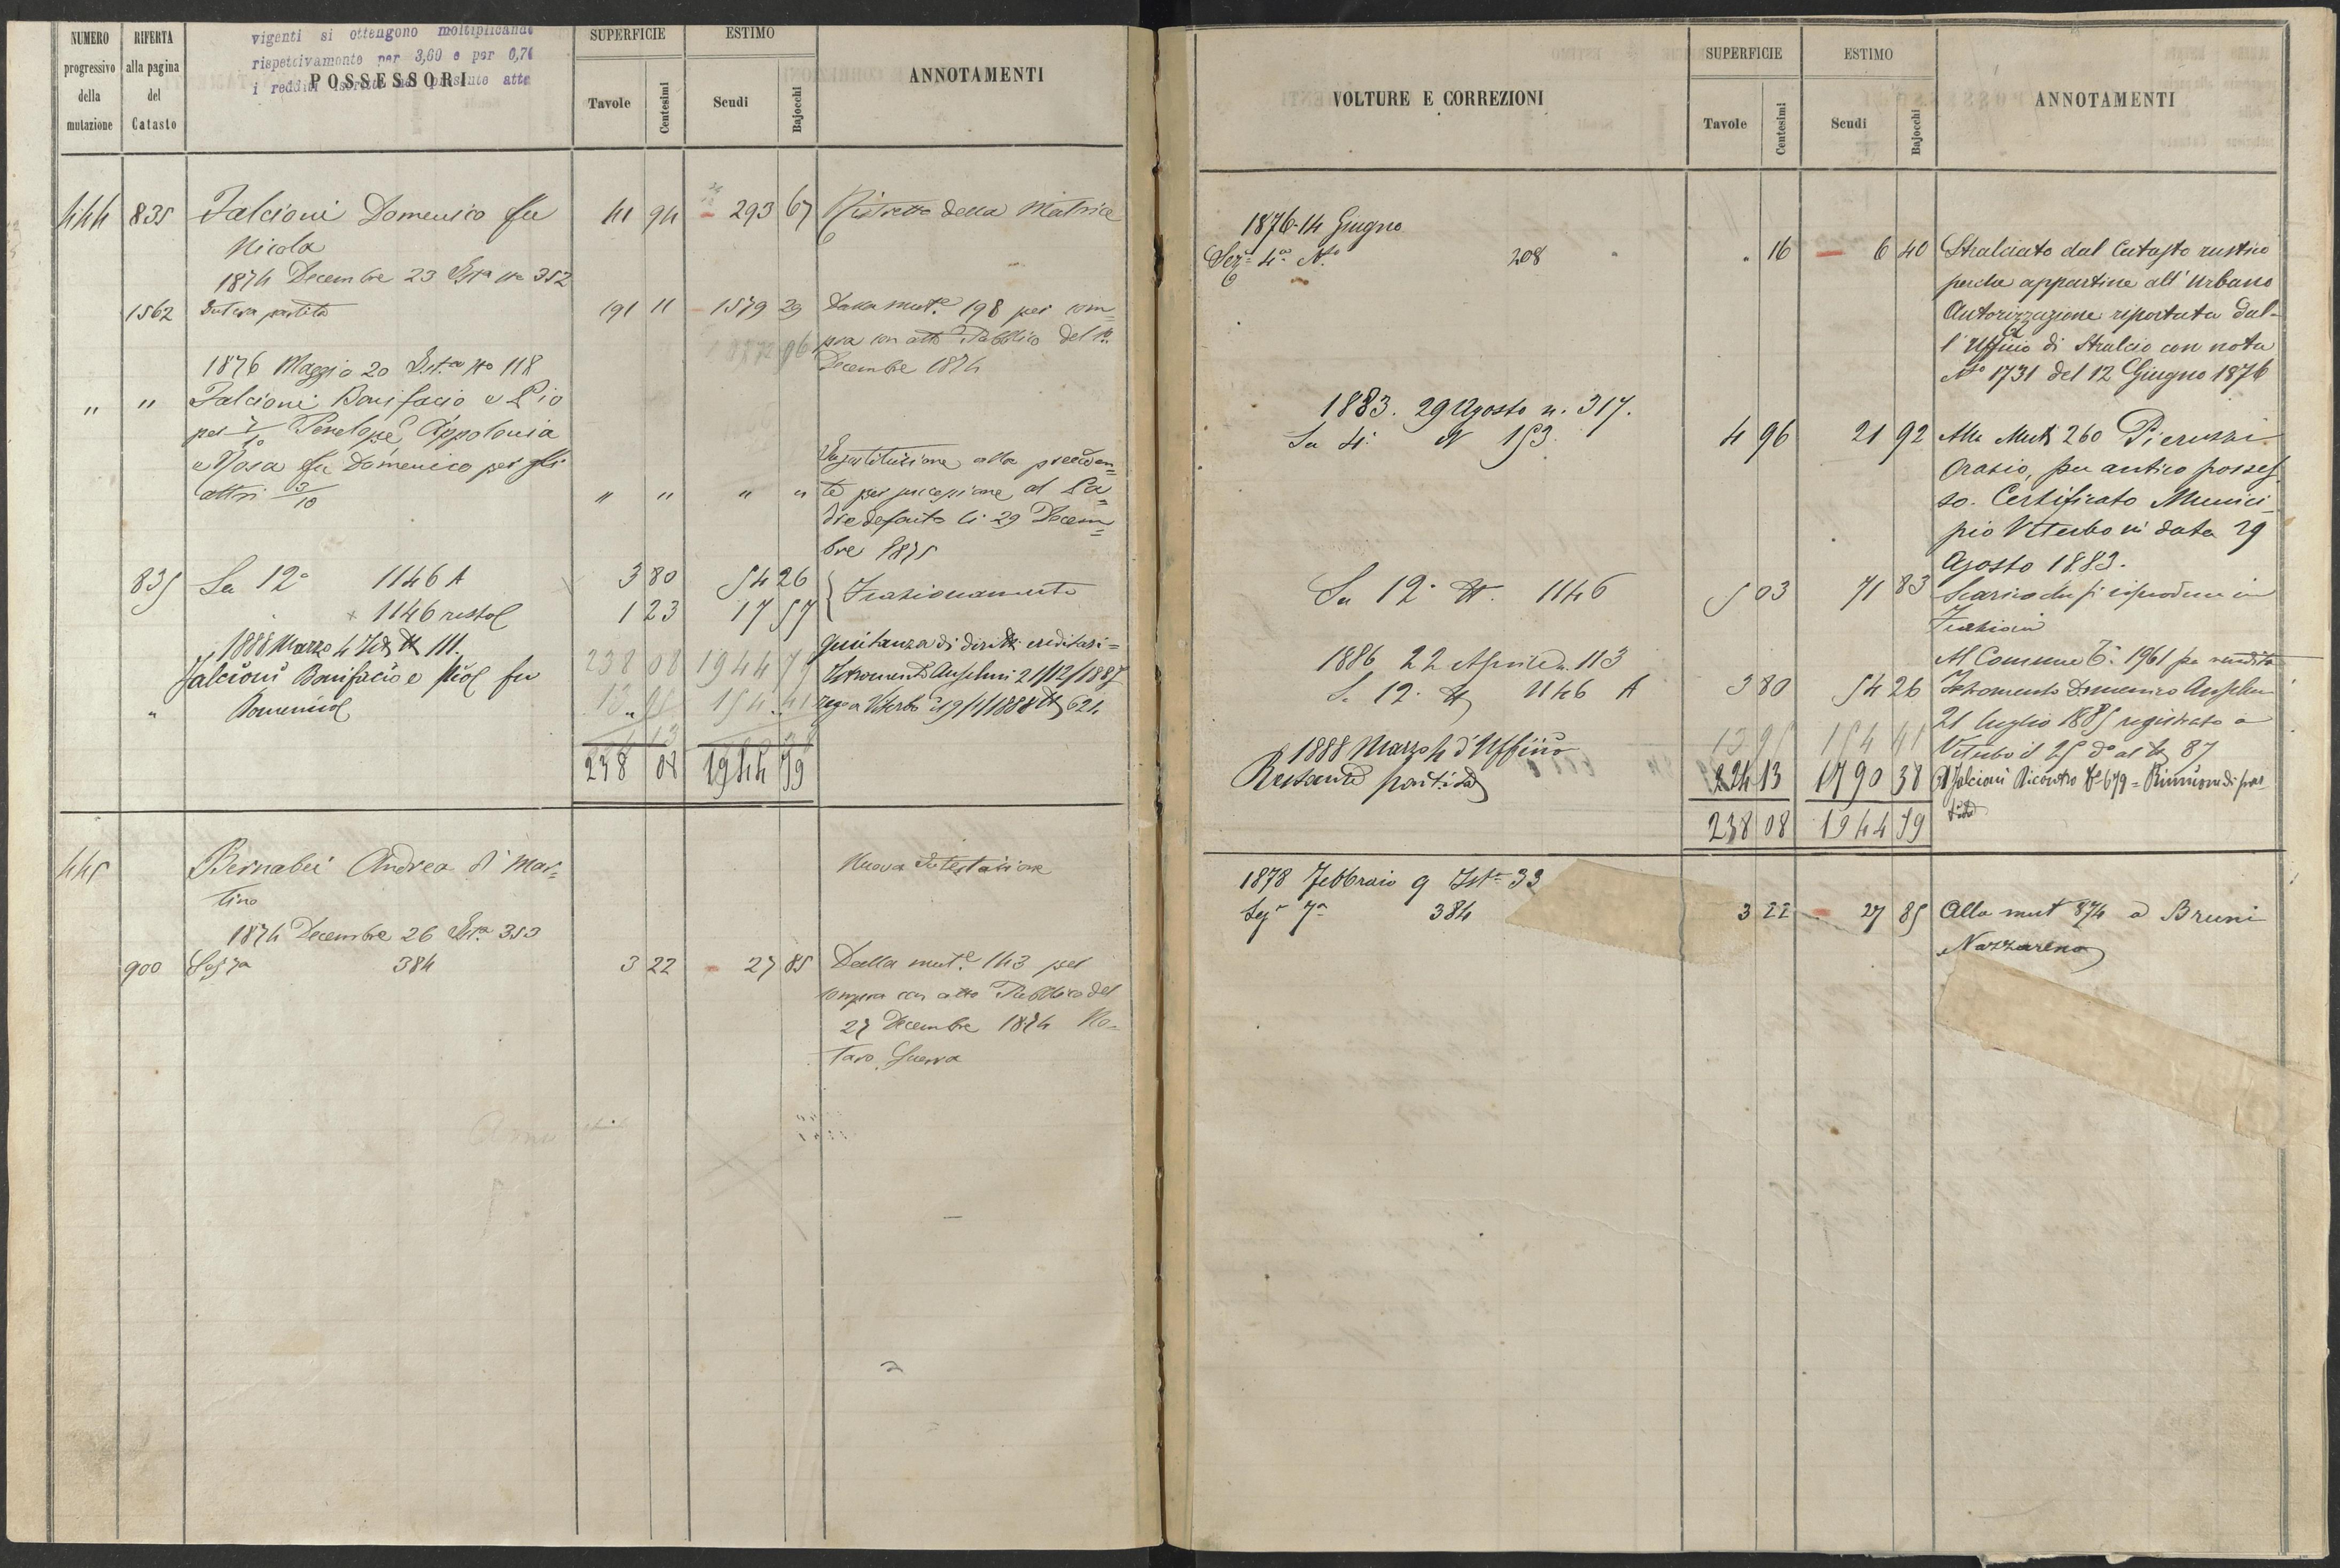 NUMERO progressivo della mutazione
RIFERTA alla pagina del Catasto
vigenti si ottengono moltiplicando
rispettivamente per 3,60 e per 0,74
POSSESSORI
SUPERFICIE
Tavole
Centesimi
ESTIMO
Scudi
Bajocchi
ANNOTAMENTI
444 835 Falcioni Domenico fu 41 94 293 67 Ristretto della Matrice
Nicola
1874 Decembre 23 Ista No 352
1562 Intera partita 191 11 1579 29 Dalla mute 198 per com=
pra con atto Pubblico del
Decembre 1874
1876 Maggio 20 Ista No 118
" " Falcioni Bonifacio e Pio
per 7/10 Penelope Appolonia
e Rosa fu Domenico per gli
altri 3/10 " " " "
In sostituzione alla preceden=
te per successione al Pa=
dre defunto li 29 Decem=
bre 1875
835 Sa 12a 1146 A 3 80 54 26
1146 resto 1 23 17 57
Frazionamento
1888 Marzo 4 111.
Falcioni Bonifacio e Pio fu
" Domenico
238 08 1944 79
13 95 154 41
238 08 1944 79
Quietanza di diritti ereditari=
Istromento Anselmi 21/12/1887
rego a Viterbo 19/1/1888 No 624
445 Bernabei Andrea di Mar=
tino
Nuova Intestazione
1874 Decembre 26 Ista 353
900 Sez 7a 384 3 22 27 85 Dalla mute 143 per
compra con atto Pubblico del
27 Decembre 1874 No=
taro Guerra
VOLTURE E CORREZIONI
SUPERFICIE
Tavole
Centesimi
ESTIMO
Scudi
Bajocchi
ANNOTAMENTI
1876-14 Giugno
Sez= 4a No 208 " 16 6 40 Stralciato dal Catasto rustico
perche appartine all'Urbano
Autorizzazione riportata dal=
l'Ufficio di Stralcio con nota
No 1731 del 12 Giugno 1876
1883. 29 Agosto n. 317.
Sa 4a N 153. 4 96 21 92 Alla Muta 260 Pieruzzi
Orazio, per antico posses=
so. Certificato Munici=
pio Viterbo in data 29
Agosto 1883.
Sa 12a N. 1146 5 03 71 83 Scarico che si riproduce in
Frazioni
1886 22 Aprile n. 113
S. 12. N 1146 A 3 80 54 26
Al Comune 1961 per vendita
Istromento Domenico Anselmi
21 luglio 1885 registrato a
Viterbo il 25 do al No 87
13 95 154 41
1888 Marzo 4 d'Ufficio
Restante partita 224 13 1790 38 A Falcioni Ricontro 679 = Riunione di par=
tita
238 08 1944 79
1878 Febbraio 9 Ista 33
Sez 7a 384 3 22 27 85 Alla mut 874 a Bruni
Nazzareno